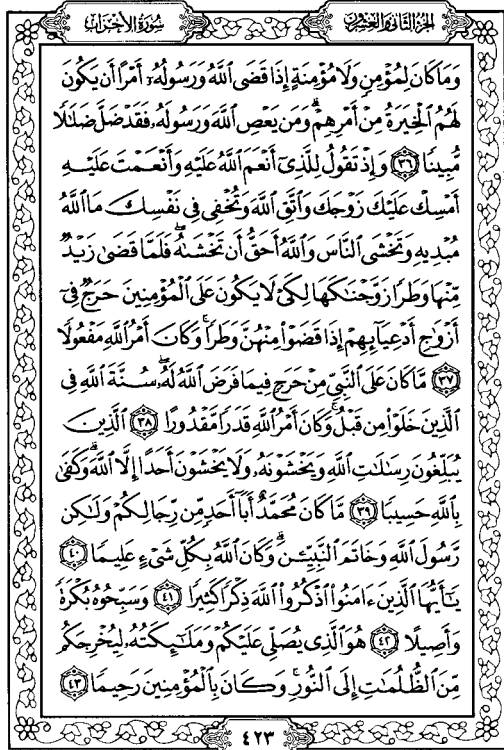 الجزء الثاني والعشرون
سورة الأحزاب
وَمَا كَانَ لِمُؤْمِنٍ وَلَا مُؤْمِنَةٍ إِذَا قَضَى ٱللَّهُ وَرَسُولُهُۥٓ أَمْرًا أَن يَكُونَ
لَهُمُ ٱلْخِيَرَةُ مِنْ أَمْرِهِمْ ۗ وَمَن يَعْصِ ٱللَّهَ وَرَسُولَهُۥ فَقَدْ ضَلَّ ضَلَٰلًا
مُّبِينًا ٣٦ وَإِذْ تَقُولُ لِلَّذِىٓ أَنْعَمَ ٱللَّهُ عَلَيْهِ وَأَنْعَمْتَ عَلَيْهِ
أَمْسِكْ عَلَيْكَ زَوْجَكَ وَٱتَّقِ ٱللَّهَ وَتُخْفِى فِى نَفْسِكَ مَا ٱللَّهُ
مُبْدِيهِ وَتَخْشَى ٱلنَّاسَ وَٱللَّهُ أَحَقُّ أَن تَخْشَىٰهُ ۖ فَلَمَّا قَضَىٰ زَيْدٌ
مِّنْهَا وَطَرًا زَوَّجْنَٰكَهَا لِكَىْ لَا يَكُونَ عَلَى ٱلْمُؤْمِنِينَ حَرَجٌ فِىٓ
أَزْوَٰجِ أَدْعِيَآئِهِمْ إِذَا قَضَوْا۟ مِنْهُنَّ وَطَرًا ۚ وَكَانَ أَمْرُ ٱللَّهِ مَفْعُولًا
٣٧ مَّا كَانَ عَلَى ٱلنَّبِىِّ مِنْ حَرَجٍ فِيمَا فَرَضَ ٱللَّهُ لَهُۥ ۖ سُنَّةَ ٱللَّهِ فِى
ٱلَّذِينَ خَلَوْا۟ مِن قَبْلُ ۚ وَكَانَ أَمْرُ ٱللَّهِ قَدَرًا مَّقْدُورًا ٣٨ ٱلَّذِينَ
يُبَلِّغُونَ رِسَٰلَٰتِ ٱللَّهِ وَيَخْشَوْنَهُۥ وَلَا يَخْشَوْنَ أَحَدًا إِلَّا ٱللَّهَ ۗ وَكَفَىٰ
بِٱللَّهِ حَسِيبًا ٣٩ مَّا كَانَ مُحَمَّدٌ أَبَآ أَحَدٍ مِّن رِّجَالِكُمْ وَلَٰكِن
رَّسُولَ ٱللَّهِ وَخَاتَمَ ٱلنَّبِيِّـۧنَ ۗ وَكَانَ ٱللَّهُ بِكُلِّ شَىْءٍ عَلِيمًا ٤٠
يَٰٓأَيُّهَا ٱلَّذِينَ ءَامَنُوا۟ ٱذْكُرُوا۟ ٱللَّهَ ذِكْرًا كَثِيرًا ٤١ وَسَبِّحُوهُ بُكْرَةً
وَأَصِيلًا ٤٢ هُوَ ٱلَّذِى يُصَلِّى عَلَيْكُمْ وَمَلَٰٓئِكَتُهُۥ لِيُخْرِجَكُم
مِّنَ ٱلظُّلُمَٰتِ إِلَى ٱلنُّورِ ۚ وَكَانَ بِٱلْمُؤْمِنِينَ رَحِيمًا ٤٣
٤٢٣